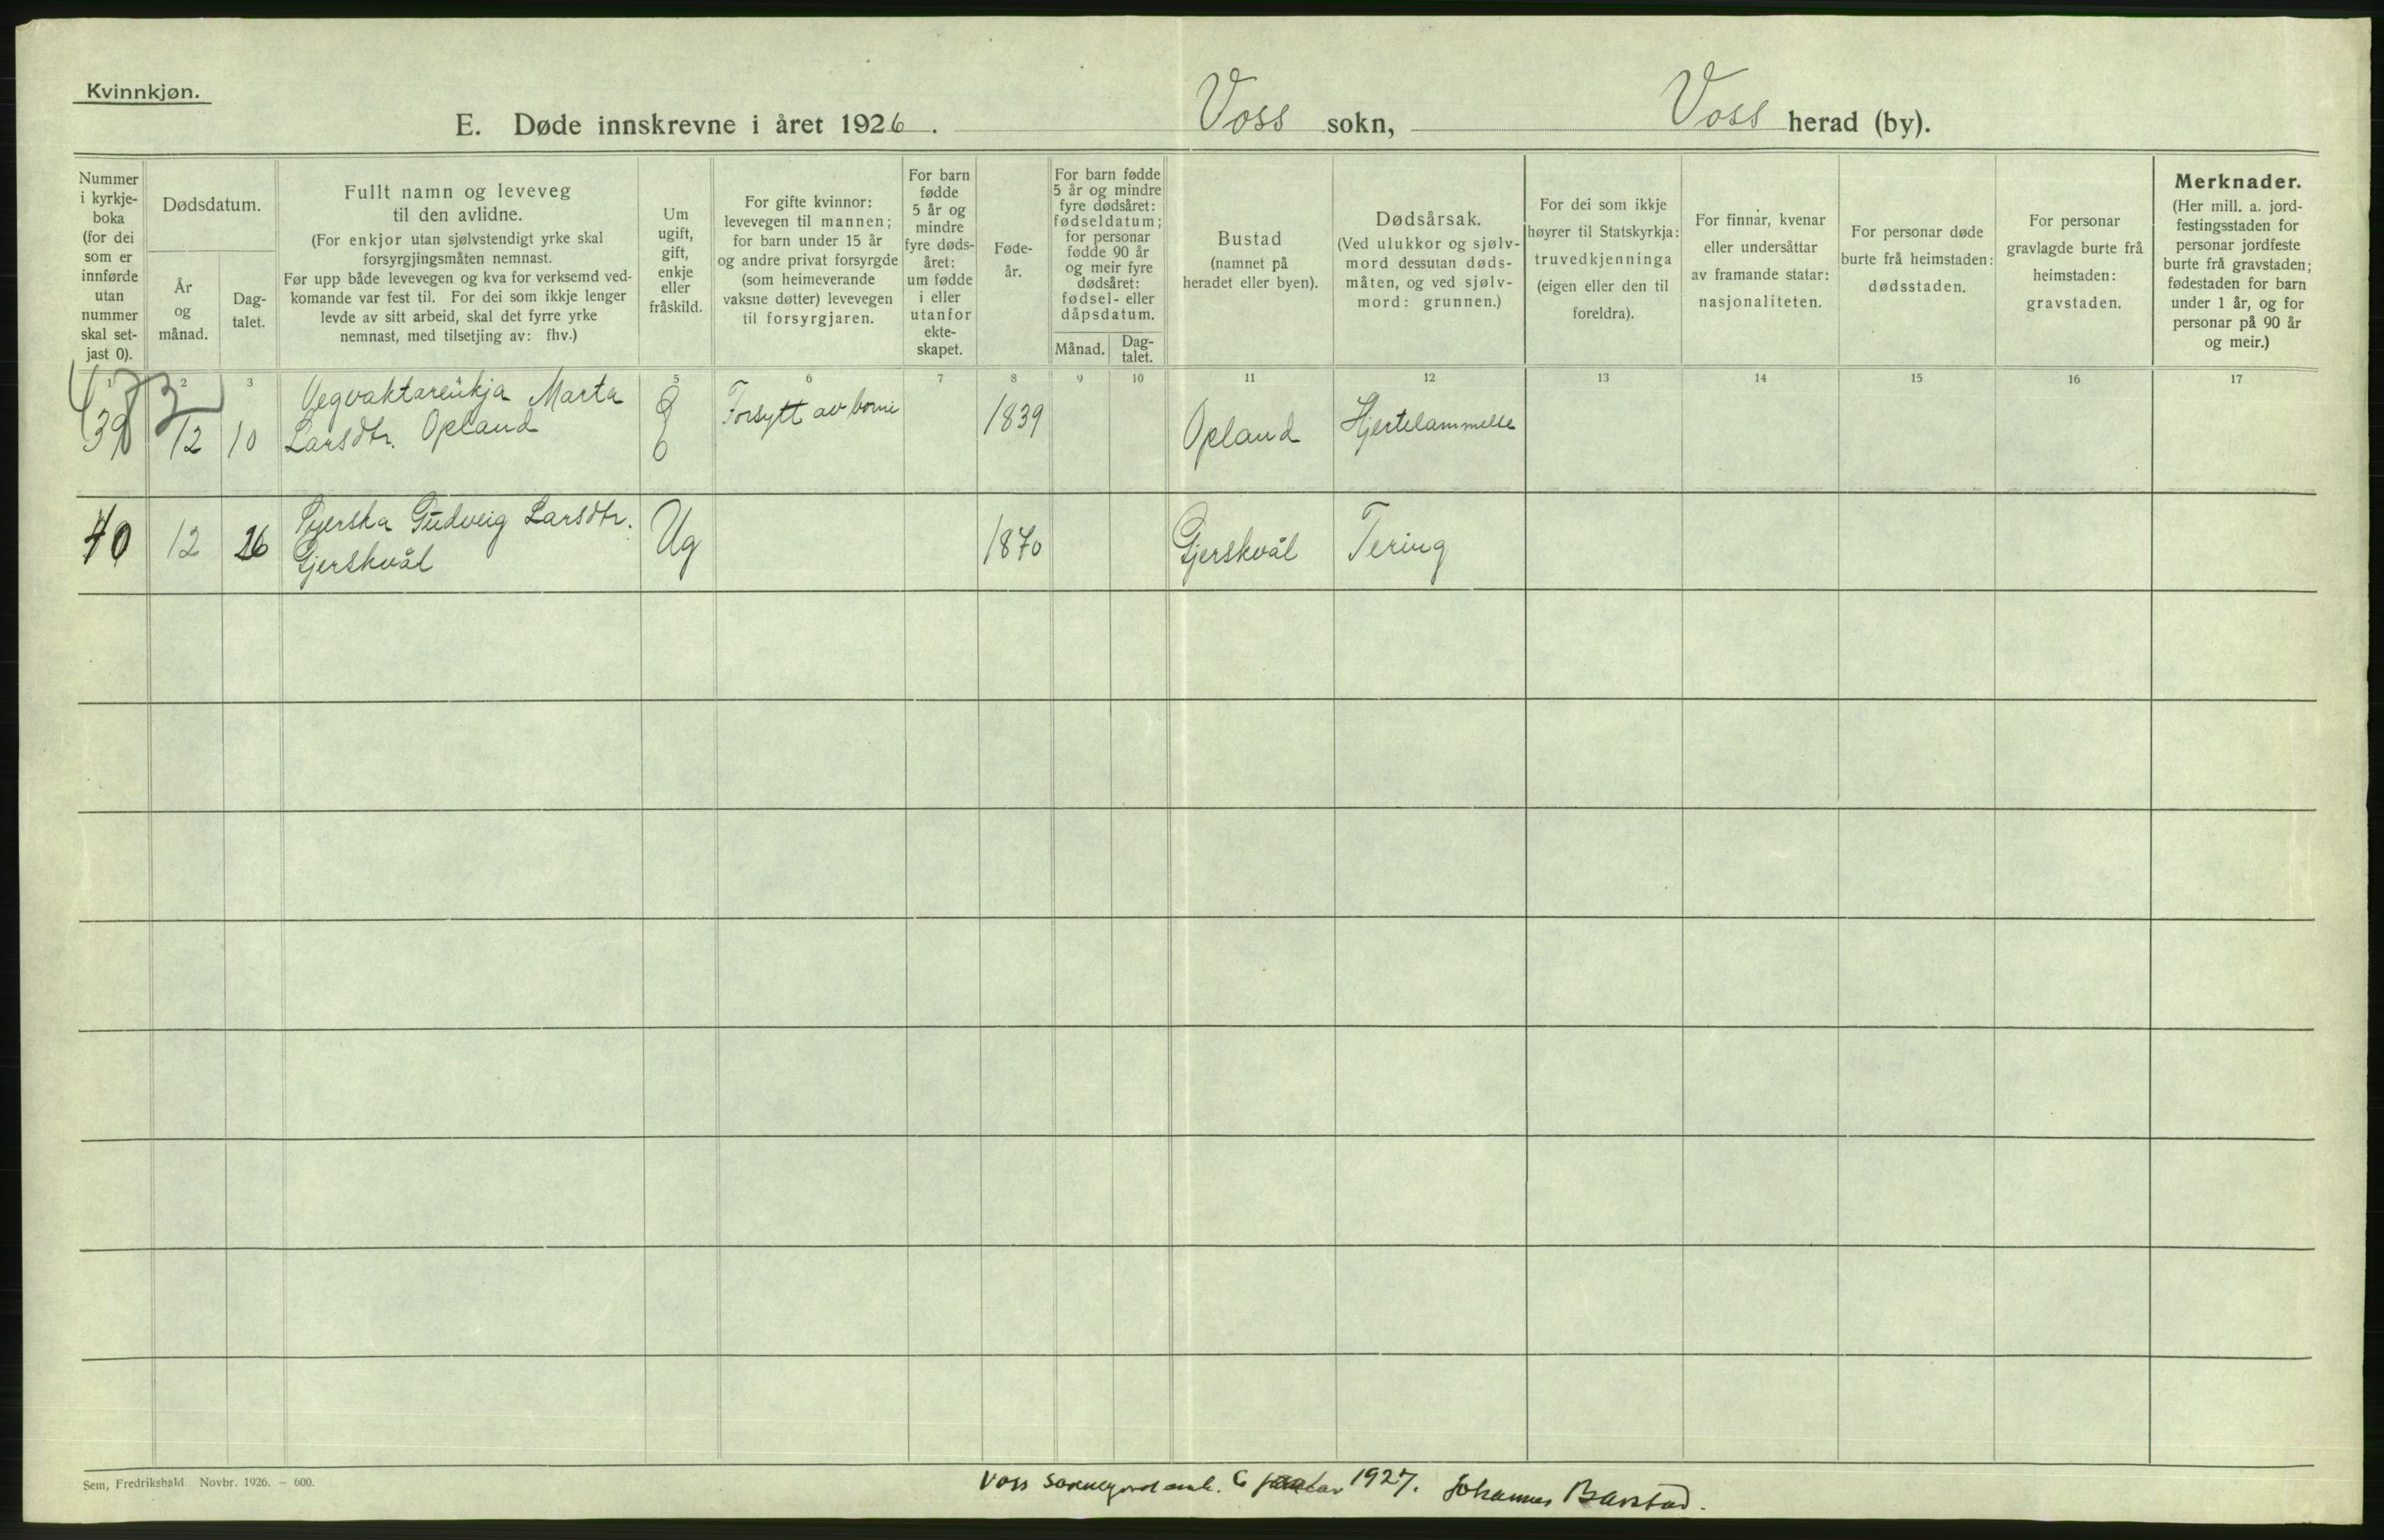 Kvinnkjøn.
E. Døde innskrevne i året 1926. Voss sokn, Voss herad (by).
Nummer
i kyrkje-
boka
(for dei
som er
innførde
utan
nummer
skal set-
jast 0).
Dødsdatum.
År
og
månad.
Dag-
talet.
Fullt namn og leveveg
til den avlidne.
(For enkjor utan sjølvstendigt yrke skal
forsyrgjingsmåten nemnast.
Før upp både levevegen og kva for verksemd ved-
komande var fest til. For dei som ikkje lenger
levde av sitt arbeid, skal det fyrre yrke
nemnast, med tilsetjing av: fhv.)
Um
ugift,
gift,
enkje
eller
fråskild.
For gifte kvinnor:
levevegen til mannen;
for barn under 15 år
og andre privat forsyrgde
(som heimeverande
vaksne døtter) levevegen
til forsyrgjaren.
For barn
fødde
5 år og
mindre
fyre døds-
året:
um fødde
i eller
utanfor
ekte-
skapet.
Føde-
år.
For barn fødde
5 år og mindre
fyre dødsåret:
fødseldatum;
for personar
fødde 90 år
og meir fyre
dødsåret:
fødsel- eller
dåpsdatum.
Månad.
Dag-
talet.
Bustad
(namnet på
heradet eller byen).
Dødsårsak.
(Ved ulukkor og sjølv-
mord dessutan døds-
måten, og ved sjølv-
mord: grunnen.)
For dei som ikkje
høyrer til Statskyrkja:
truvedkjenninga
(eigen eller den til
foreldra).
For finnar, kvenar
eller undersåttar
av framande statar:
nasjonaliteten.
For personar døde
burte frå heimstaden:
dødsstaden.
For personar
gravlagde burte frå
heimstaden:
gravstaden.
Merknader.
(Her mill. a. jord-
festingsstaden for
personar jordfeste
burte frå gravstaden;
fødestaden for barn
under 1 år, og for
personar på 90 år
og meir.)
1 2 3 5 6 7 8 9 10 11 12 13 14 15 16 17
39 12 10 Vegvaktarenkja Marta
Larsdtr. Opland
Forsytt av borni 1839 Opland Hjertelammelse
40 12 26 Gudveig Larsdtr.
Gjerskvål
Ug 1870 Gjerskvål Tering
Sem, Fredrikshald. Novbr. 1926. — 600.
Voss 6 januar 1927. Johannes Barstad.